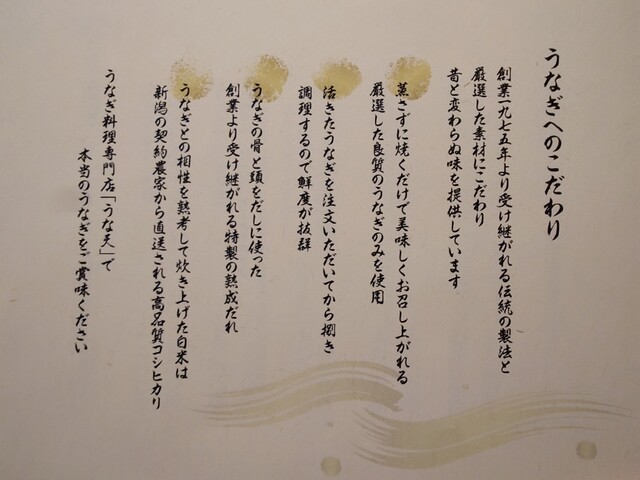 うなぎへのこだわり
創業一九七五年より受け継がれる伝統の製法と
厳選した素材にこだわり
昔と変わらぬ味を提供しています
蒸さずに焼くだけで美味しくお召し上がれる
厳選した良質のうなぎのみを使用
活きたうなぎを注文いただいてから捌き
調理するので鮮度が抜群
うなぎの骨と頭をだしに使った
創業より受け継がれる特製の熟成だれ
うなぎとの相性を熟考して炊き上げた白米は
新潟の契約農家から直送される高品質コシヒカリ
うなぎ料理専門店「うな天」で
本当のうなぎをご賞味ください